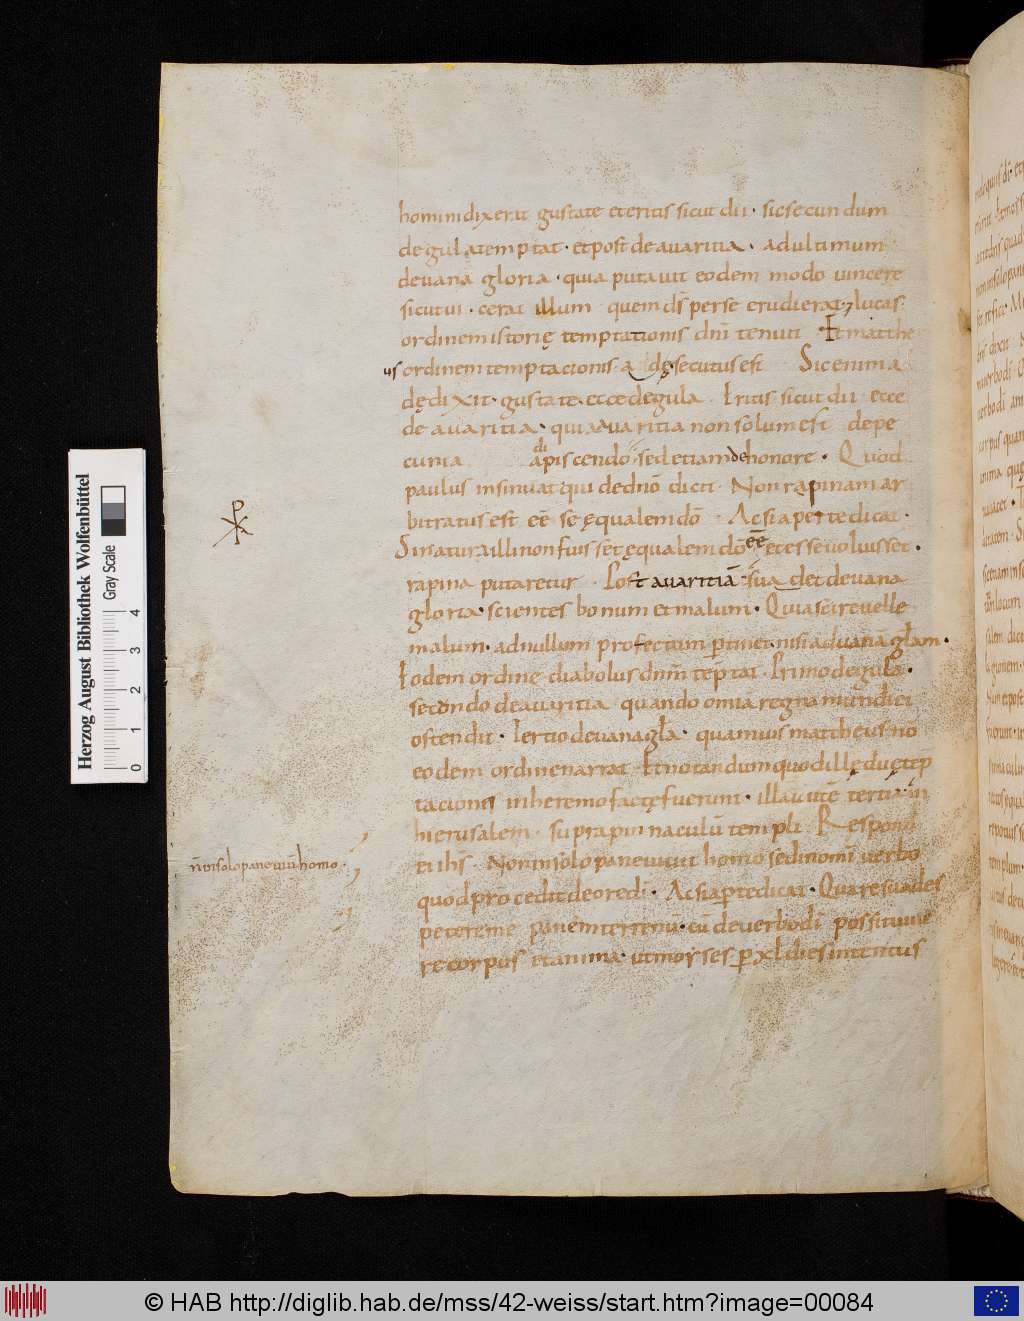 homini dixerit gustate et eritis sicut dii · sic secundum
de gula temptat · et post de avaritia · ad ultimum
de vana gloria · quia putavit eodem modo vincere
sicut ui · cerat illum quem ds per se erudierat · lucas
ordinem istorię temptationis dnī tenuit · Et matthe
us ordinem temptacionis adę secutus est Sic enim a
dę dixit · gustate · ecce de gula · Eritis sicut dii ecce
de avaritia · quia avaritia non solum est de pe
cunia adipiscendo sed etiam de honore · Quod
paulus insinuat qui de dnō dicit · Non rapinam ar
bitratus est eē se ęqualem dō · Ac si aperte dicat ·
Si natura illi non fuisset ęqualem dō eē et esse voluisset ·
rapina putaretur · Post avaritiā suadet de vana
gloria · scientes bonum et malum · Quia scire velle
malum · ad nullum profectum ptinet nisi ad vanā glam ·
Eodem ordine diabolus dnm̄ tēptat · Primo de gula ·
secondo de avaritia quando omia regna mundi ei
ostendit · Tertio de vana gla · quamvis mattheus nō
eodem ordine narrat Et notandum quod illę duę tēp
taciones in heremo factę fuerunt · illa autē tertia in
hierusalem · supra pinnaculū templi Respond
et ihs · Non in solo pane vivit homo sed in omi verbo
quod procedit de ore di · Ac si apte dicat · Quare suades
petere me panem terrenū · cū de verbo di possit vive
re corpus et anima · ut moyses p xl dies intentus
n̄ in solo pane vivit homo ·
Herzog August Bibliothek Wolfenbüttel
Gray Scale
0 1 2 3 4
© HAB http://diglib.hab.de/mss/42-weiss/start.htm?image=00084